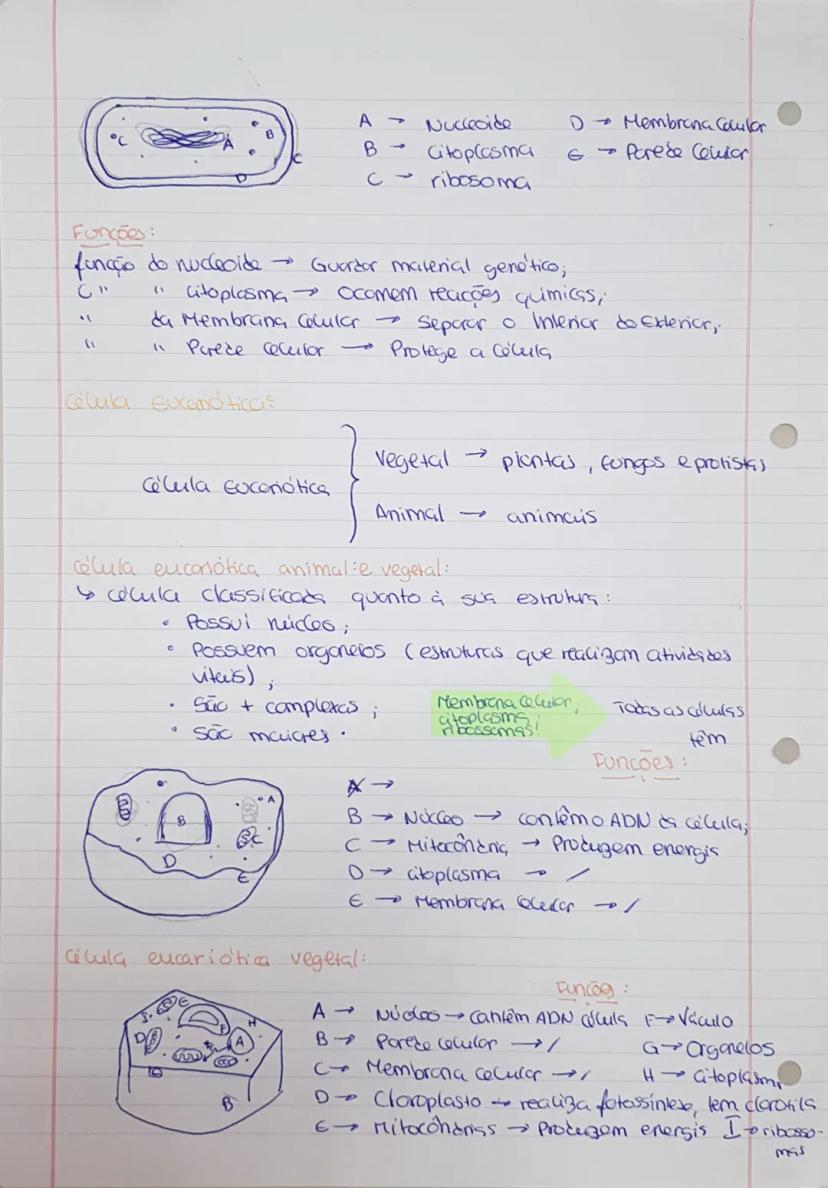 C A B C D
A → Nucleoide D → Membrana Celular
B → Citoplasma E → Parede Celular
C → ribosoma
Funções:
função do nucleoide → Guardar material genético;
" " Citoplasma → Ocorrem reações químicas;
" da Membrana Celular → Separar o Interior do Exterior;
" " Parede Celular → Protege a Célula
Célula Eucariótica:
Vegetal → plantas, fungos e protistas
Célula Eucariótica
Animal → animais
Célula eucariótica animal e vegetal:
↳ célula classificada quanto à sua estrutura:
• Possui núcleo;
• Possuem organelos (estruturas que realizam atividades
vitais);
• São + complexas;
• São maiores.
Membrana Celular;
citoplasma;
ribossomas!
Todas as células
têm
Funções:
A →
B → Núcleo → contêm o ADN da célula;
C → Mitocôndria → Produzem energia
D → citoplasma → /
E → Membrana Celular → /
A B C D E
Célula eucariótica vegetal:
Função:
A → Núcleo → contêm ADN célula F → Vácuolo
B → Parede celular → / G → Organelos
C → Membrana celular → / H → Citoplasma
D → Cloroplasto → realiza fotossíntese, tem clorofila
E → Mitocôndrias → Produzem energia I → ribosso-
mas
I E F H D A B